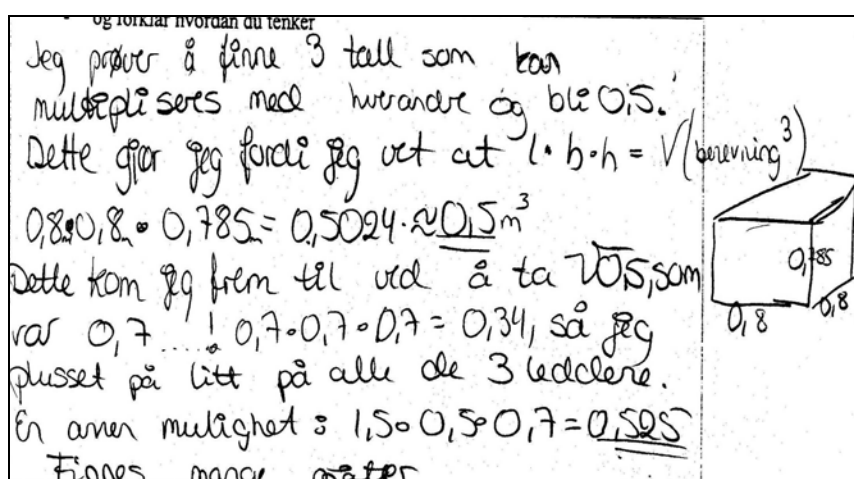 og forklar hvordan du tenker
Jeg prøver å finne 3 tall som kan
multipliseres med hverandre og bli 0,5.
Dette gjør jeg fordi jeg vet at l·b·h = V(benevning³)
0,8m·0,8m·0,785m = 0,5024 ≈ 0,5m³
Dette kom jeg frem til ved å ta √0,5, som
var 0,7....! 0,7·0,7·0,7 = 0,34, så jeg
plusset på litt på alle de 3 leddene.
En annen mulighet: 1,5·0,5·0,7 = 0,525
Finnes mange måter
0,785
0,8
0,8